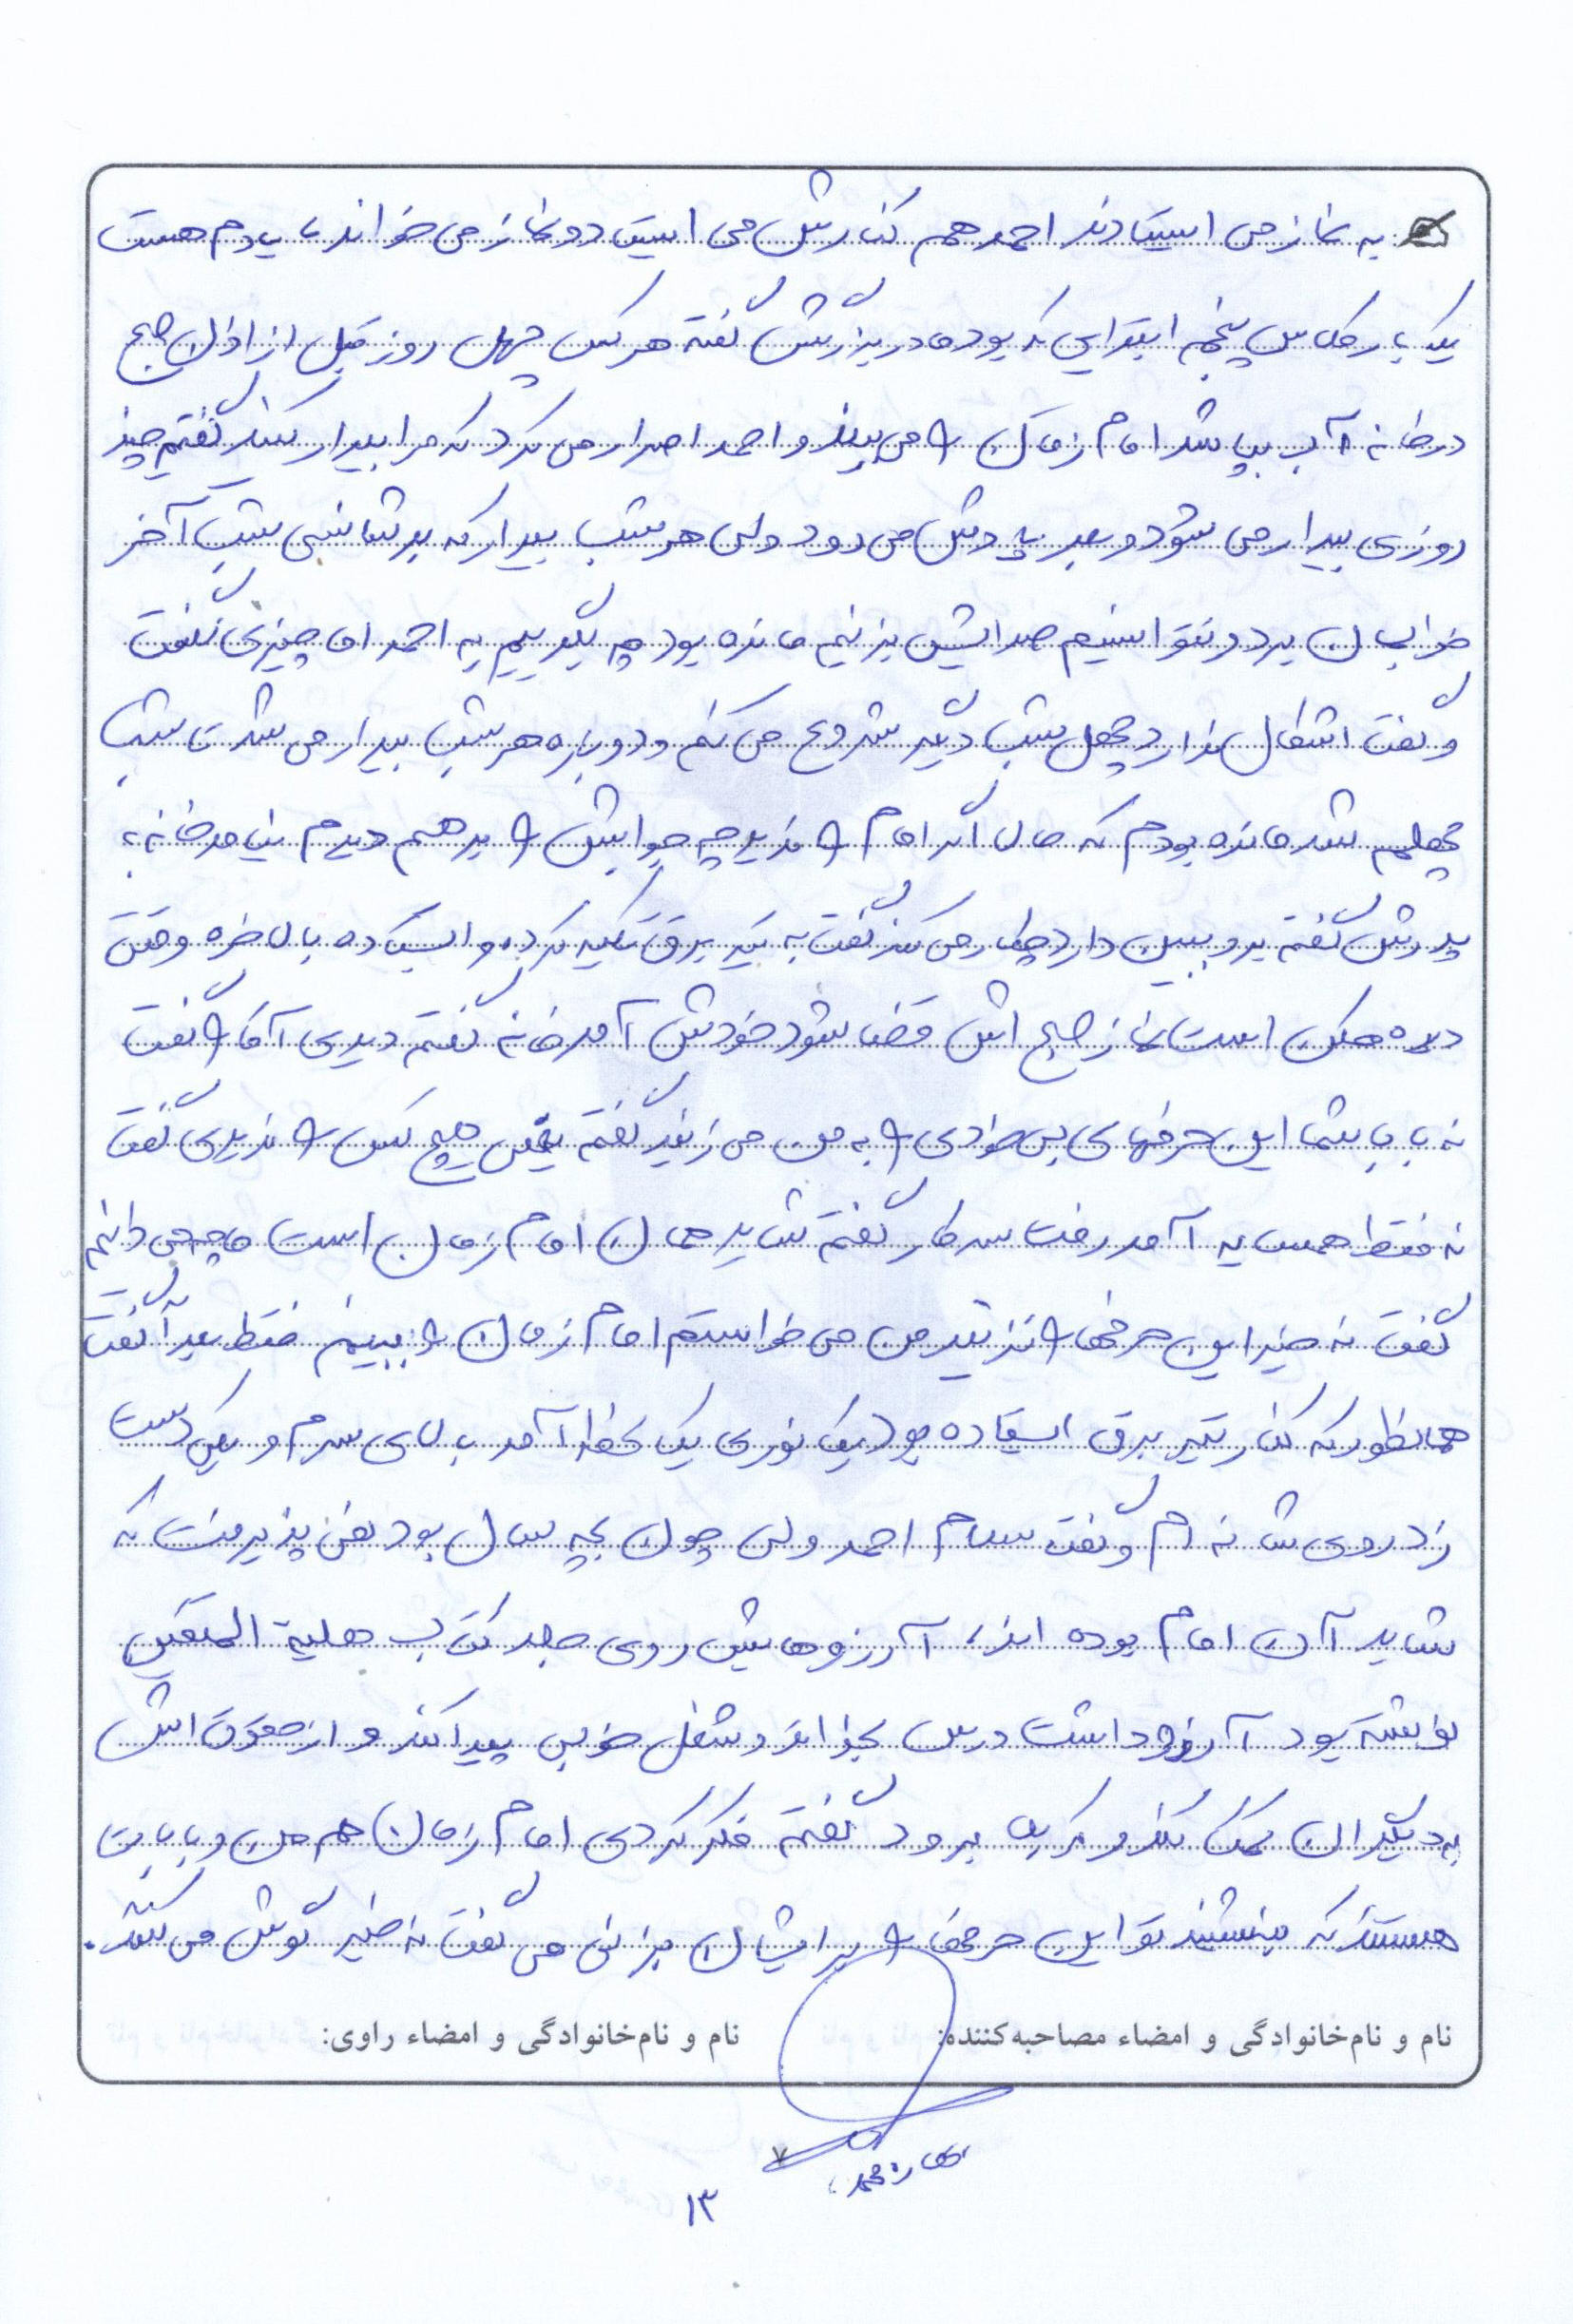 به نماز می استادند احمد هم کنارش می استاد و نماز می خواند، یادم هست
یکبار کلاس پنجم ابتدایی که بود مادربزرگش گفته هر کس چهل روز قبل از اذان صبح
در خانه آب بپاشد امام زمان را می بیند و احمد اصرار می کرد که مرا بیدار کنید گفتیم چند
روزی بیدار می شود و بعد یادش می رود ولی هر شب بیدار که بدشانسی شب آخر
خوابمان برد و نتوانستیم صدایش بزنیم مانده بودم چه بگوییم به احمد اما چیزی نگفت
و گفت اشکال ندارد چهل شب دیگر شروع می کنم و دوباره هر شب بیدار می شد تا شب
چهلم شد مانده بودم که حالا اگر امام را ندید چه جوابش را بدهم دیدم نیامد خانه به
پدرش گفتم برو ببین دارد چکار می کند گفت به تیر برق تکیه کرده و ایستاده بالاخره وقتی
دیده ممکن است نماز صبح اش قضا شود خودش آمد خانه گفتم دیدی آقا را گفت
نه بابا شما این حرفهای بی خودی را به من می زنید گفتم یعنی هیچ کس را ندیدی گفت
نه فقط همسایه آمد رفت سر کار گفتم شاید همان امام زمان است ما چه می دانیم
گفت نه خیر این حرفها را نزنید من می خواستم امام زمان را ببینم فقط بعدآ گفت
همانطور که کنار تیر برق استاده بود یک نوری یک لحظه آمد بالای سرم و یکی دست
زد روی شانه ام و گفت سلام احمد ولی چون بچه سال بود نمی پذیرفت که
شاید آن امام بوده اند، آرزوهایش روی جلد کتاب حلیة المتقین
نوشته بود آرزو داشت درس بخواند و شغل خوبی پیدا کند و از حقوق اش
به دیگران کمک کند و کربلا برود گفتم فکر کردی امام زمان هم من و بابات
هستند که بنشیند تو این حرفها را برایشان بزنی می گفت نه خیر گوش می کنند.
نام و نام‌خانوادگی و امضاء مصاحبه‌کننده: نام و نام‌خانوادگی و امضاء راوی:
۷
۱۳